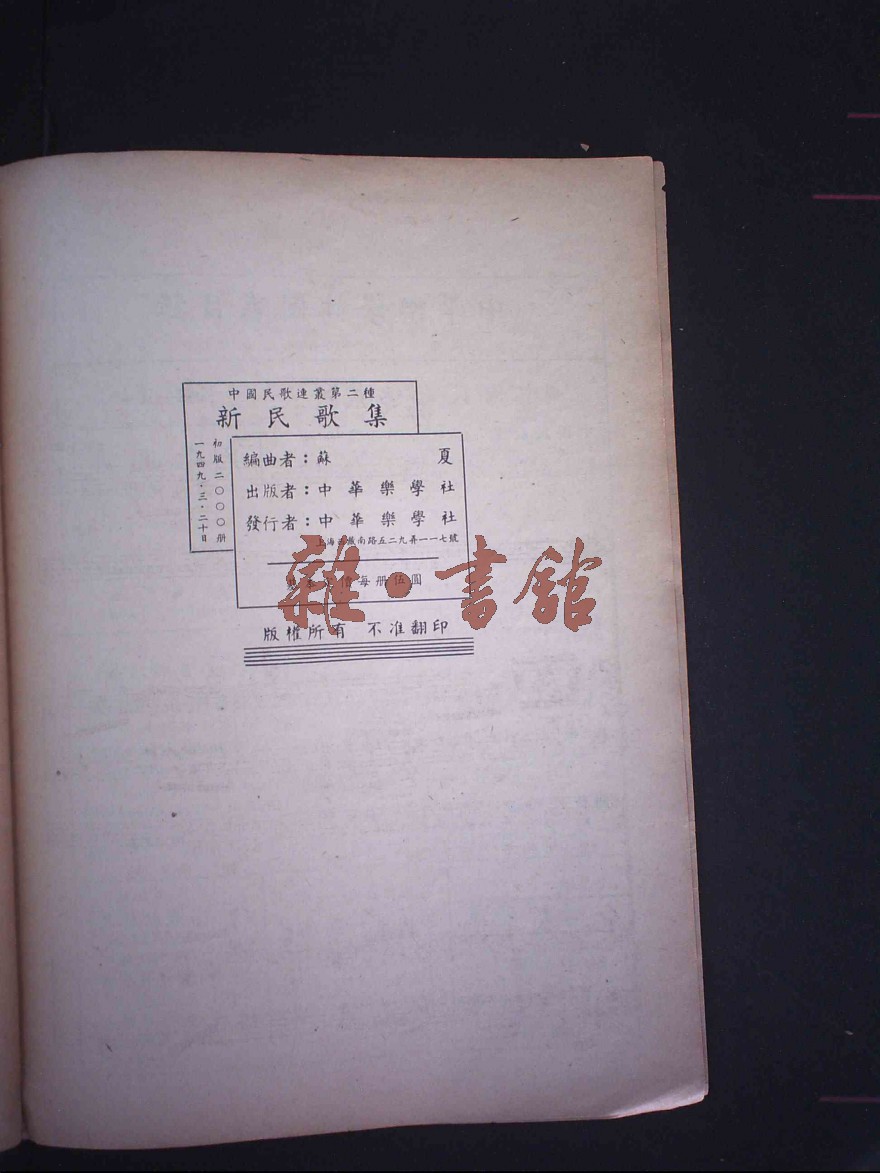 中國民歌連叢第二種
新民歌集
初版二〇〇〇册
一九四九·三·二十日
編曲者：蘇 夏
出版者：中華樂學社
發行者：中華樂學社
上海 南路五二九弄一一七號
基本定價每册伍圓
版權所有 不准翻印
雜·書館